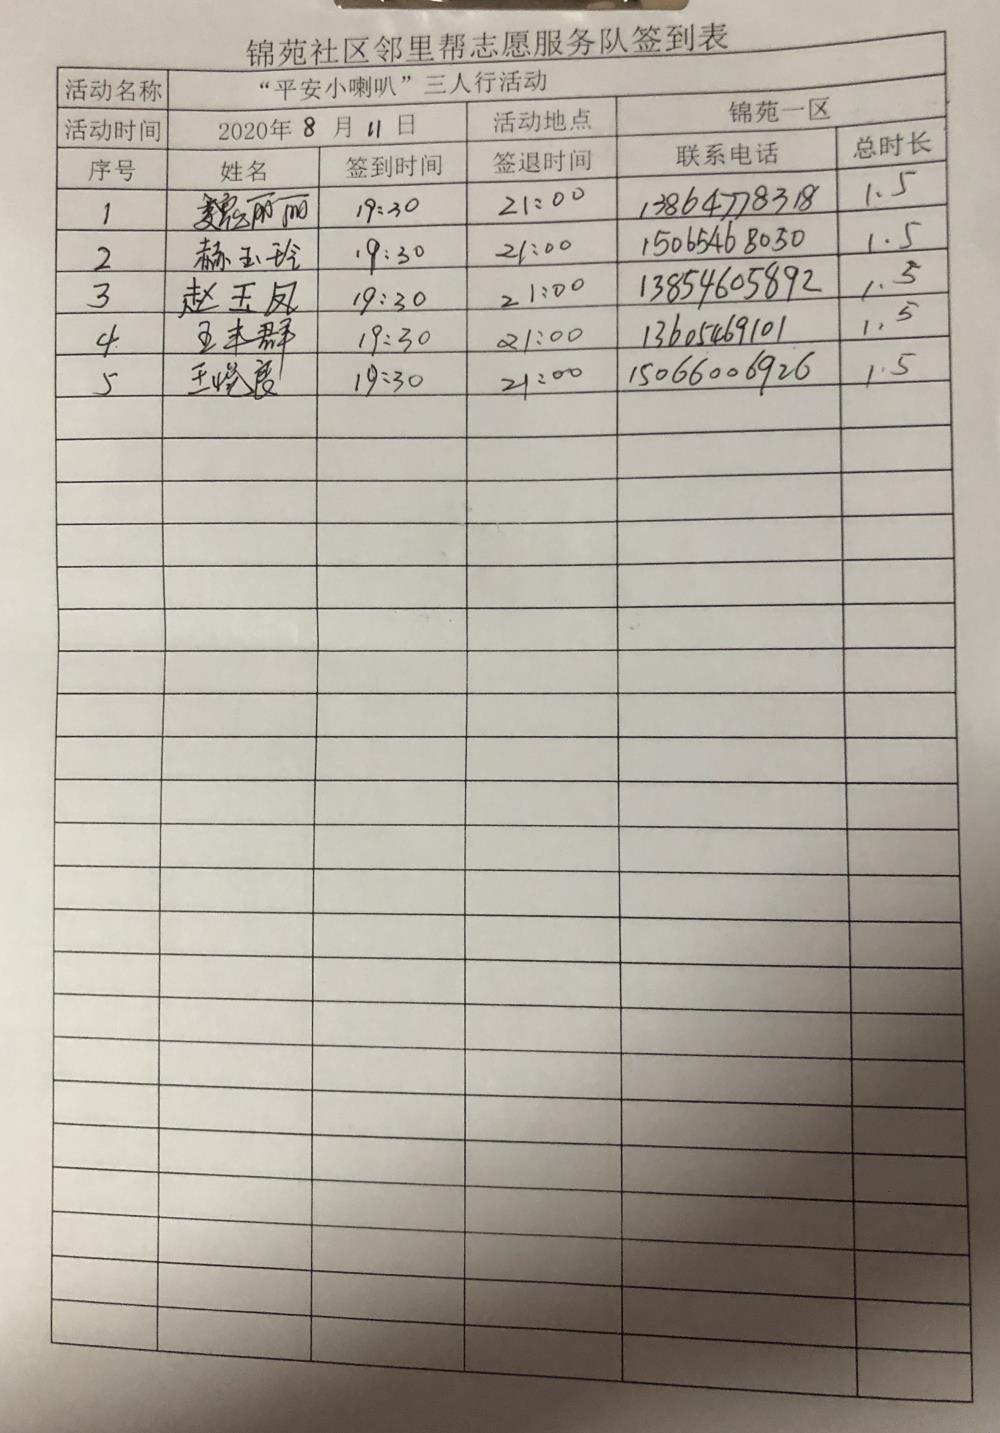 锦苑社区邻里帮志愿服务队签到表
活动名称 “平安小喇叭”三人行活动
活动时间 2020年 8 月 11 日 活动地点 锦苑一区
序号 姓名 签到时间 签退时间 联系电话 总时长
1 魏丽丽 19:30 21:00 13864778318 1.5
2 赫玉玲 19:30 21:00 15065468030 1.5
3 赵玉凤 19:30 21:00 13854605892 1.5
4 王丰群 19:30 21:00 13605469101 1.5
5 王 19:30 21:00 15066006926 1.5